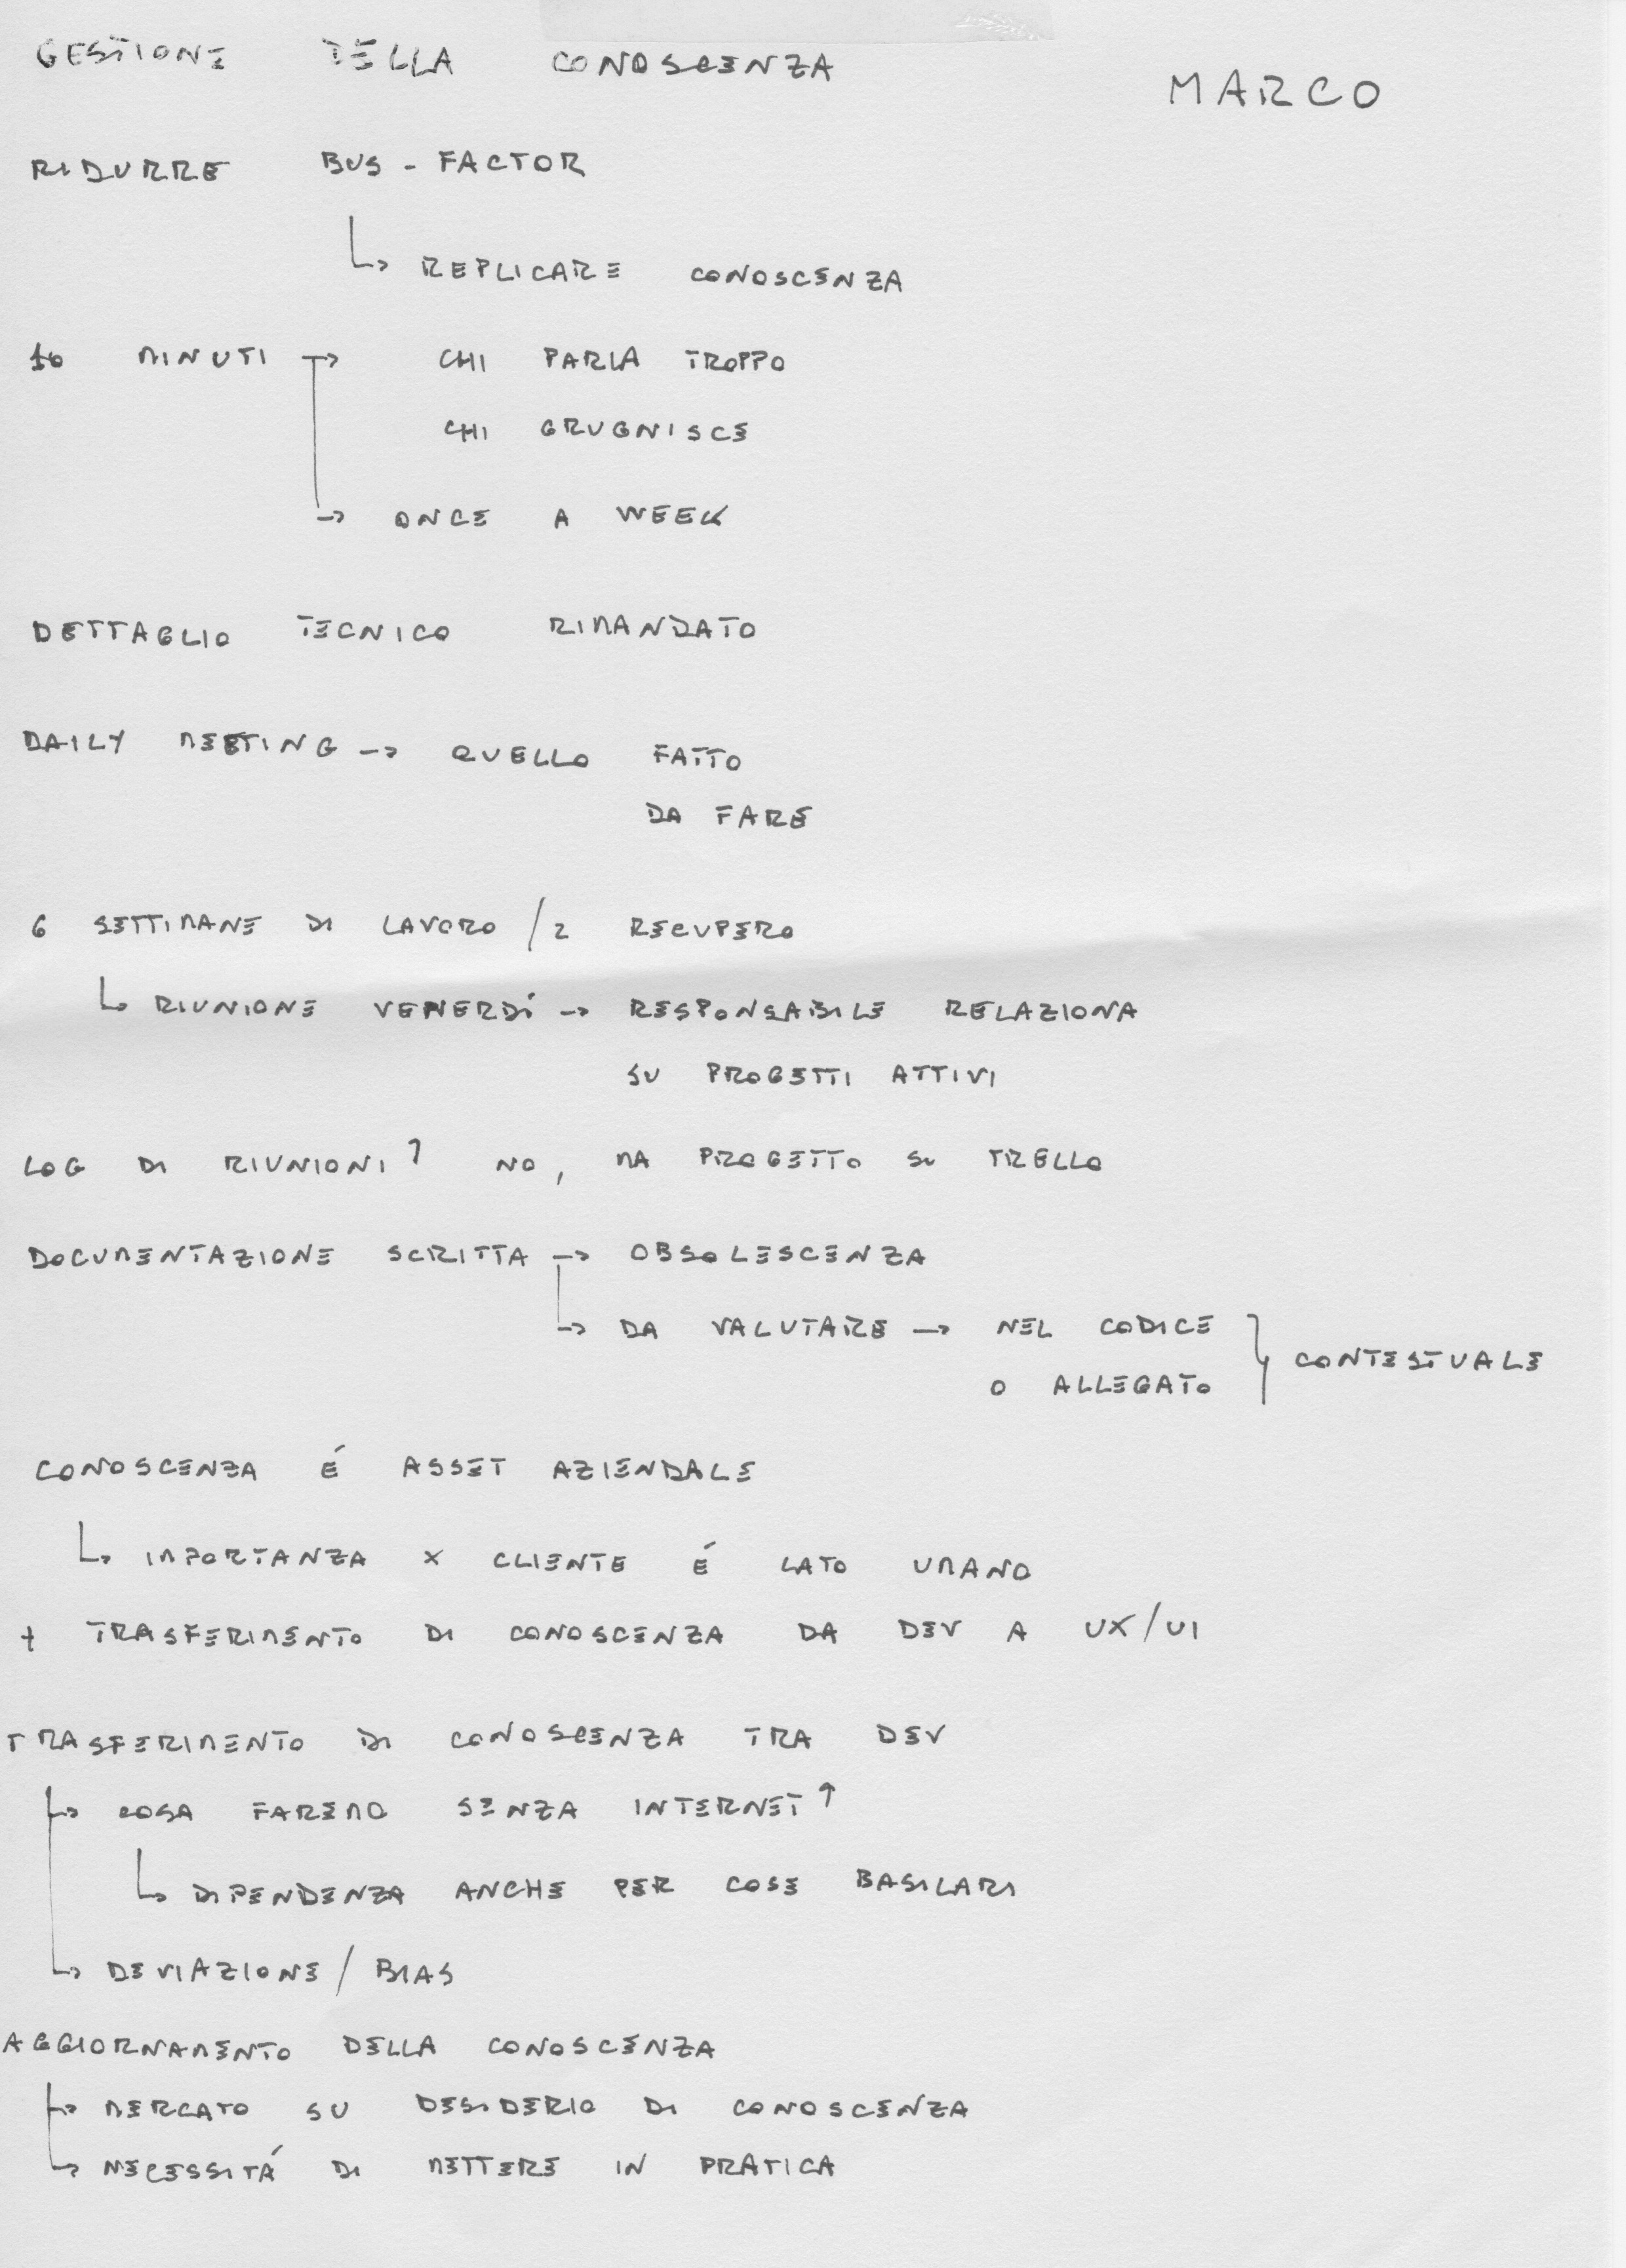 GESTIONE DELLA CONOSCENZA
MARCO
RIDURRE BUS - FACTOR
↳ REPLICARE CONOSCENZA
10 MINUTI → CHI PARLA TROPPO
CHI GRUGNISCE
→ ONCE A WEEK
DETTAGLIO TECNICO RIMANDATO
DAILY MEETING → QUELLO FATTO
DA FARE
6 SETTIMANE DI LAVORO / 2 RECUPERO
↳ RIUNIONE VENERDÍ → RESPONSABILE RELAZIONA
SU PROGETTI ATTIVI
LOG DI RIUNIONI? NO, MA PROGETTO SU TRELLO
DOCUMENTAZIONE SCRITTA → OBSOLESCENZA
↳ DA VALUTARE → NEL CODICE
O ALLEGATO } CONTESTUALE
CONOSCENZA É ASSET AZIENDALE
↳ IMPORTANZA X CLIENTE É LATO UMANO
+ TRASFERIMENTO DI CONOSCENZA DA DEV A UX/UI
TRASFERIMENTO DI CONOSCENZA TRA DEV
↳ COSA FAREMO SENZA INTERNET?
↳ DIPENDENZA ANCHE PER COSE BASILARI
↳ DEVIAZIONE / BIAS
AGGIORNAMENTO DELLA CONOSCENZA
↳ MERCATO SU DESIDERIO DI CONOSCENZA
↳ NECESSITÁ DI METTERE IN PRATICA